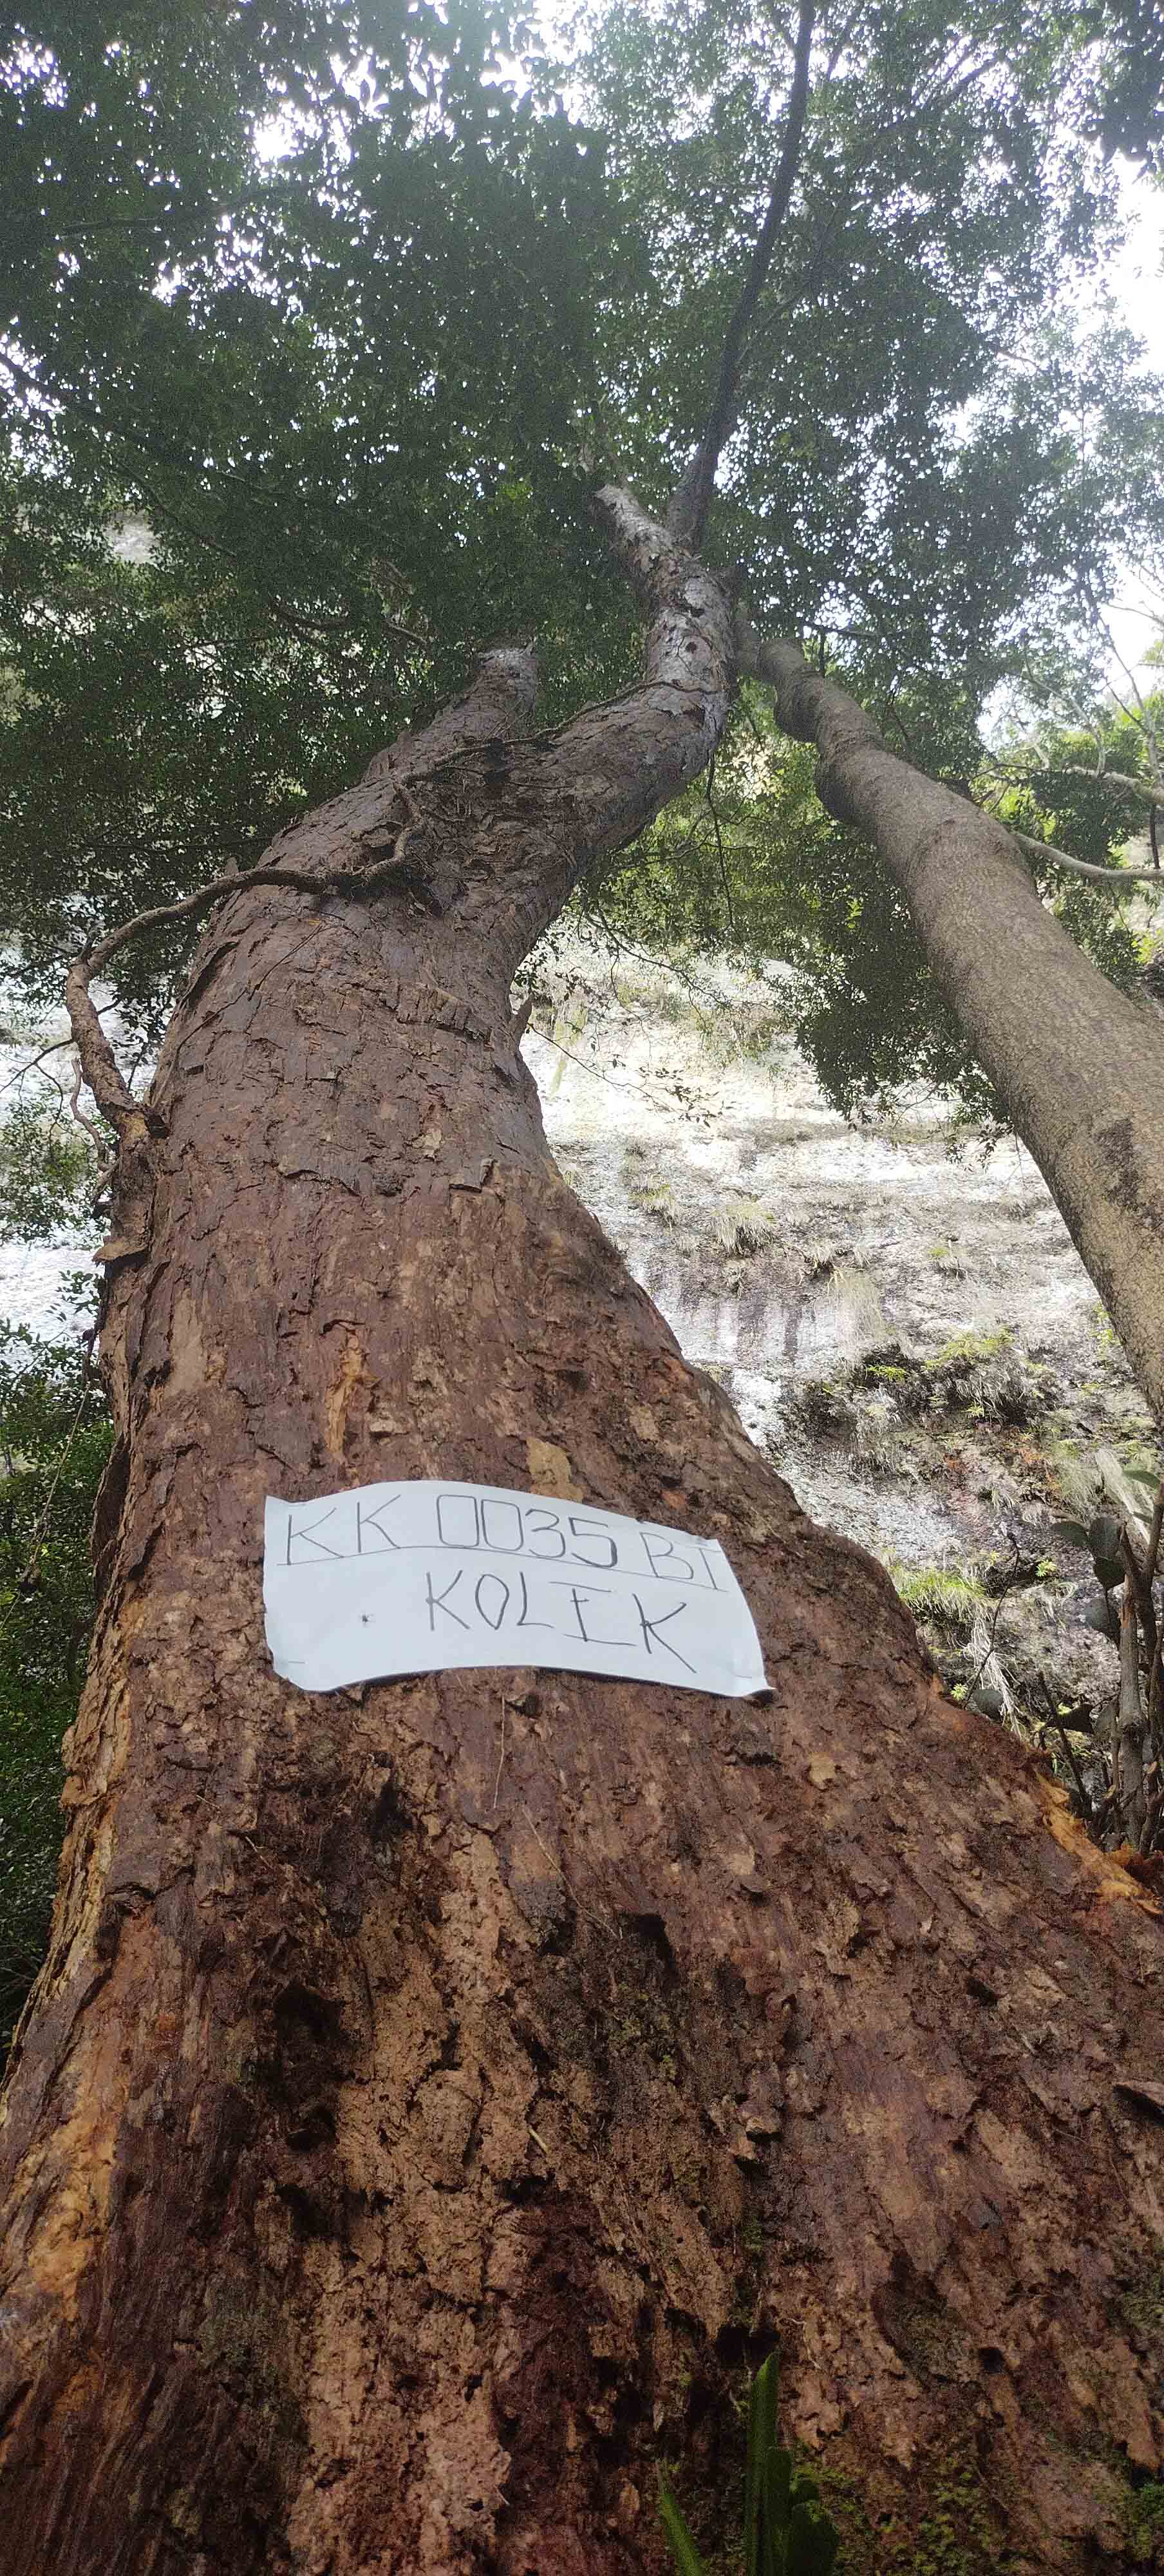 KK 0035 BI
KOLIK